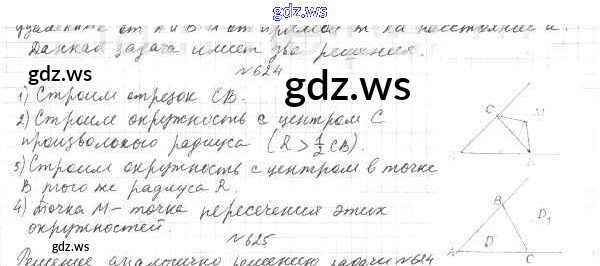 gdz.ws
удаленные от A и B и от прямой m на расстояние n.
Данная задача имеет две решения.
№624
gdz.ws
gdz.ws
1) Строим отрезок CB.
2) Строим окружность с центром C
произвольного радиуса (R > 1/2 CB).
3) Строим окружность с центром в точке
B того же радиуса R.
4) Точка M - точка пересечения этих
окружностей.
gdz.ws
gdz.ws
№625
Решение аналогично решению задачи №624
C
M
A
B
B
D₁
D
A
C
gdz.ws